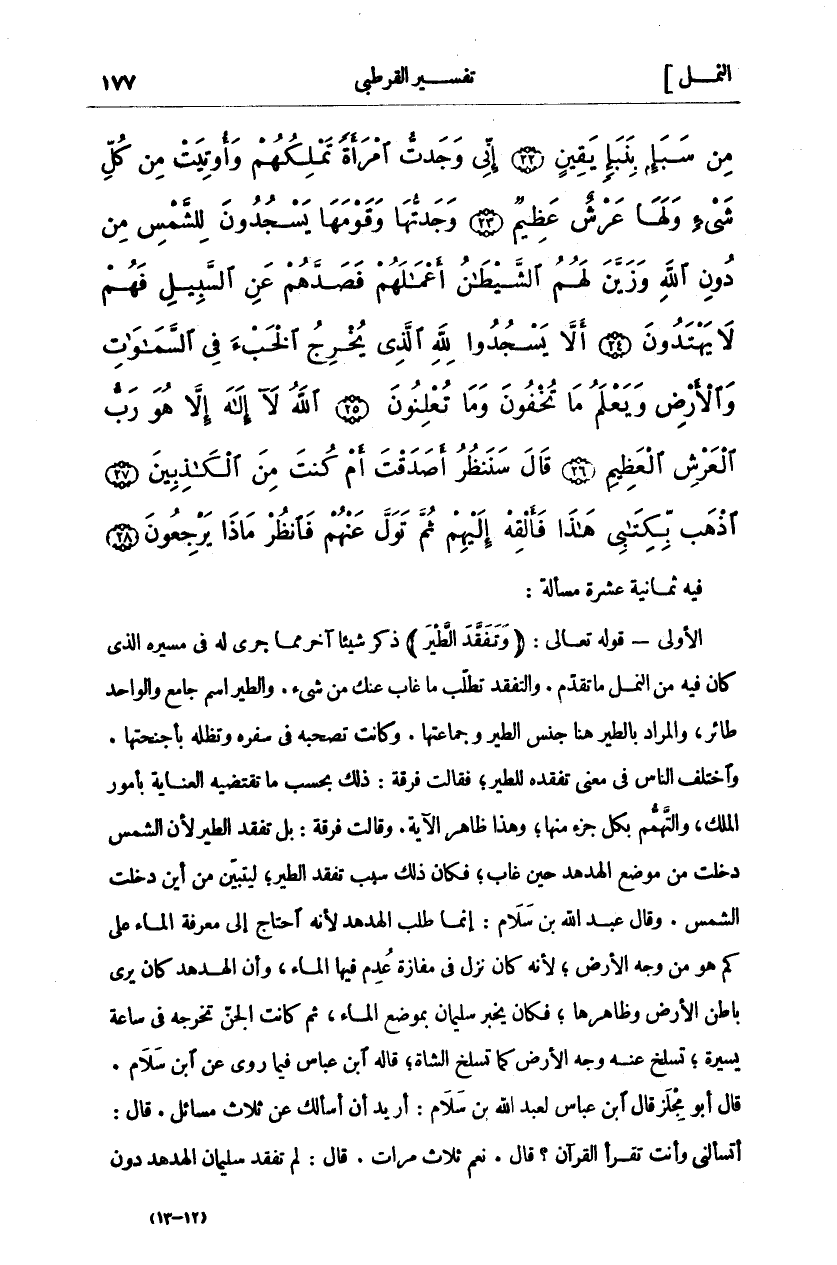 النمـــل ] تفســـير القرطبى ١٧٧
مِن سَبَإٍۭ بِنَبَإٍ يَقِينٍ ﴿٢٢﴾ إِنِّى وَجَدتُّ ٱمْرَأَةً تَمْلِكُهُمْ وَأُوتِيَتْ مِن كُلِّ
شَىْءٍ وَلَهَا عَرْشٌ عَظِيمٌ ﴿٢٣﴾ وَجَدتُّهَا وَقَوْمَهَا يَسْجُدُونَ لِلشَّمْسِ مِن
دُونِ ٱللَّهِ وَزَيَّنَ لَهُمُ ٱلشَّيْطَٰنُ أَعْمَٰلَهُمْ فَصَدَّهُمْ عَنِ ٱلسَّبِيلِ فَهُمْ
لَا يَهْتَدُونَ ﴿٢٤﴾ أَلَّا يَسْجُدُوا لِلَّهِ ٱلَّذِى يُخْرِجُ ٱلْخَبْءَ فِى ٱلسَّمَٰوَٰتِ
وَٱلْأَرْضِ وَيَعْلَمُ مَا تُخْفُونَ وَمَا تُعْلِنُونَ ﴿٢٥﴾ ٱللَّهُ لَآ إِلَٰهَ إِلَّا هُوَ رَبُّ
ٱلْعَرْشِ ٱلْعَظِيمِ ﴿٢٦﴾ قَالَ سَنَنظُرُ أَصَدَقْتَ أَمْ كُنتَ مِنَ ٱلْكَٰذِبِينَ ﴿٢٧﴾
ٱذْهَب بِّكِتَٰبِى هَٰذَا فَأَلْقِهْ إِلَيْهِمْ ثُمَّ تَوَلَّ عَنْهُمْ فَٱنظُرْ مَاذَا يَرْجِعُونَ ﴿٢٨﴾
فيه ثمـانية عشرة مسألة :
الأولى — قوله تعـالى : ﴿وَتَفَقَّدَ الطَّيْرَ﴾ ذكر شيئا آخر ممـا جرى له فى مسيره الذى
كان فيه من النمـل ما تقدّم . والتفقد تطلّب ما غاب عنك من شىء . والطير اسم جامع والواحد
طائر، والمراد بالطير هنا جنس الطير وجماعتها . وكانت تصحبه فى سفره وتظله بأجنحتها .
وٱختلف الناس فى معنى تفقده للطير؛ فقالت فرقة : ذلك بحسب ما تقتضيه العنـاية بأمور
الملك، والتهمُّم بكل جزء منها؛ وهذا ظاهر الآية . وقالت فرقة : بل تفقد الطير لأن الشمس
دخلت من موضع الهدهد حين غاب؛ فكان ذلك سبب تفقد الطير؛ ليتبيّن من أين دخلت
الشمس . وقال عبـد الله بن سَلَام : إنمـا طلب الهدهد لأنه ٱحتاج إلى معرفة المـاء على
كم هو من وجه الأرض ؛ لأنه كان نزل فى مفازة عُدِم فيها المـاء ، وأن الهـدهد كان يرى
باطن الأرض وظاهرها ؛ فكان يخبر سليمان بموضع المـاء ، ثم كانت الجنّ تخرجه فى ساعة
يسيرة ؛ تسلخ عنـه وجه الأرض كما تسلخ الشاة؛ قاله ٱبن عباس فيما روى عن ٱبن سَلَام .
قال أبو مِجْلَز قال ٱبن عباس لعبد الله بن سَلَام : أريد أن أسألك عن ثلاث مسائل . قال :
أتسألنى وأنت تقـرأ القرآن ؟ قال . نعم ثلاث مرات . قال : لم تفقد سليمان الهدهد دون
(١٢–١٣)